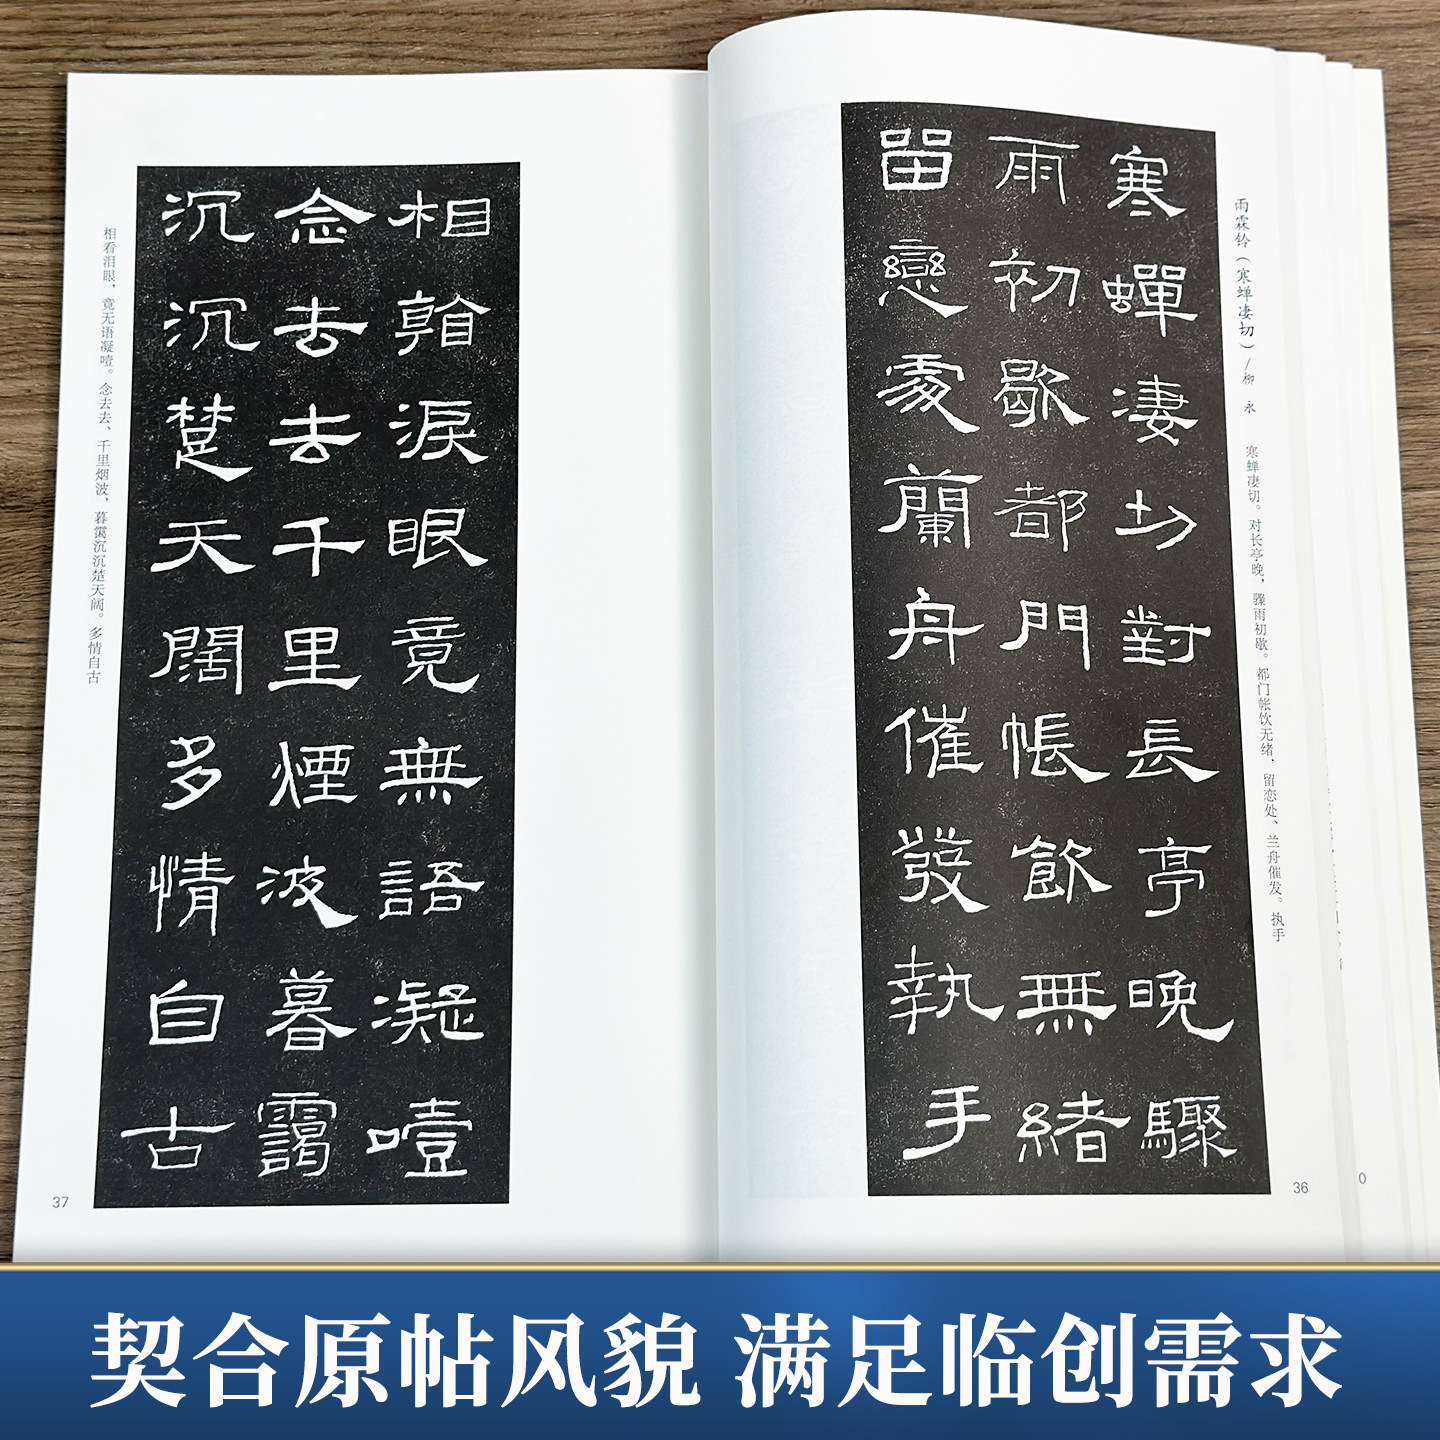 雨霖铃（寒蝉凄切）/柳 永
寒蝉凄切。对长亭晚，骤雨初歇。都门帐饮无绪，留恋处、兰舟催发。执手
寒蟬凄切對長亭晚驟
雨初歇都門帳飲無緒
留戀處蘭舟催發執手
36
0
相㸔淚眼竟無語凝噎
念去去千里煙波暮靄
沉沉楚天闊多情自古
相看泪眼，竟无语凝噎。念去去、千里烟波，暮霭沉沉楚天阔。多情自古
37
契合原帖风貌 满足临创需求